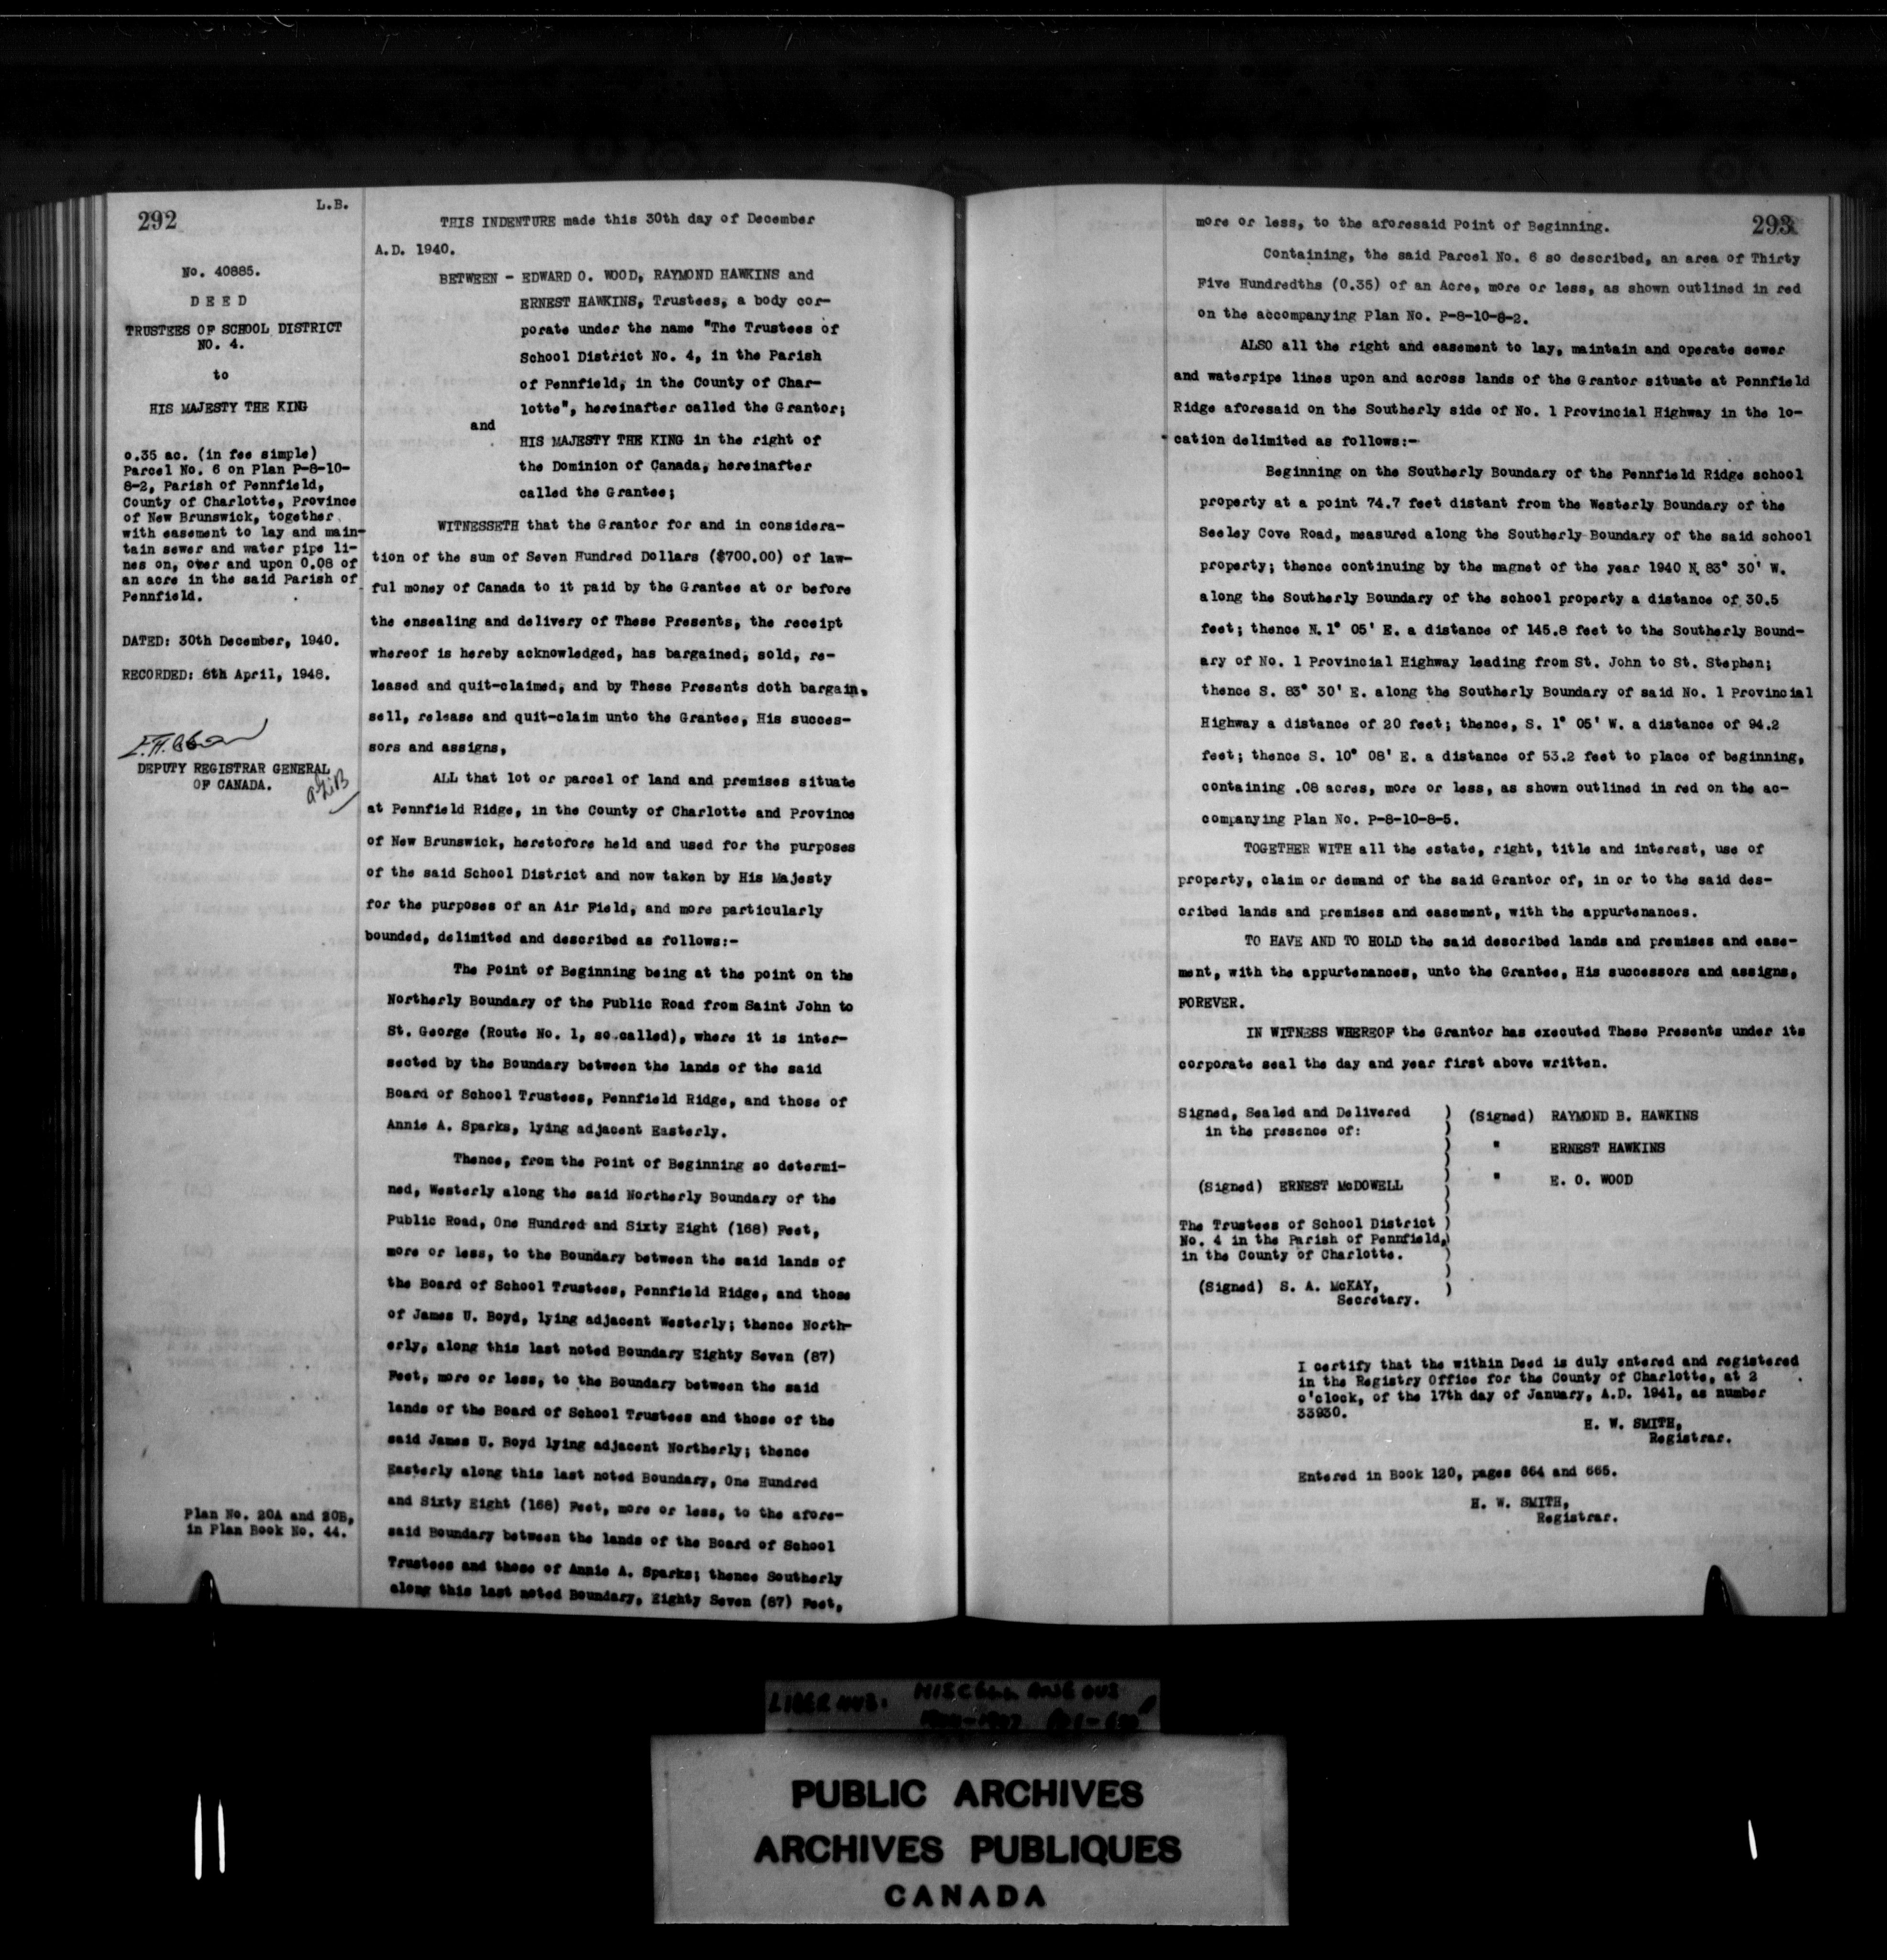 292
L.B.
No. 40885.
D E E D
TRUSTEES OF SCHOOL DISTRICT
NO. 4.
to
HIS MAJESTY THE KING
0.35 ac. (in fee simple)
Parcel No. 6 on Plan P-8-10-
8-2, Parish of Pennfield,
County of Charlotte, Province
of New Brunswick, together
with easement to lay and main-
tain sewer and water pipe li-
nes on, over and upon 0.08 of
an acre in the said Parish of
Pennfield.
DATED: 30th December, 1940.
RECORDED: 6th April, 1948.
DEPUTY REGISTRAR GENERAL
OF CANADA.
Plan No. 20A and 20B,
in Plan Book No. 44.
THIS INDENTURE made this 30th day of December
A.D. 1940.
BETWEEN - EDWARD O. WOOD, RAYMOND HAWKINS and
ERNEST HAWKINS, Trustees, a body cor-
porate under the name "The Trustees of
School District No. 4, in the Parish
of Pennfield, in the County of Char-
lotte", hereinafter called the Grantor;
and
HIS MAJESTY THE KING in the right of
the Dominion of Canada, hereinafter
called the Grantee;
WITNESSETH that the Grantor for and in considera-
tion of the sum of Seven Hundred Dollars ($700.00) of law-
ful money of Canada to it paid by the Grantee at or before
the ensealing and delivery of These Presents, the receipt
whereof is hereby acknowledged, has bargained, sold, re-
leased and quit-claimed, and by These Presents doth bargain,
sell, release and quit-claim unto the Grantee, His succes-
sors and assigns,
ALL that lot or parcel of land and premises situate
at Pennfield Ridge, in the County of Charlotte and Province
of New Brunswick, heretofore held and used for the purposes
of the said School District and now taken by His Majesty
for the purposes of an Air Field, and more particularly
bounded, delimited and described as follows:-
The Point of Beginning being at the point on the
Northerly Boundary of the Public Road from Saint John to
St. George (Route No. 1, so called), where it is inter-
sected by the Boundary between the lands of the said
Board of School Trustees, Pennfield Ridge, and those of
Annie A. Sparks, lying adjacent Easterly.
Thence, from the Point of Beginning so determi-
ned, Westerly along the said Northerly Boundary of the
Public Road, One Hundred and Sixty Eight (168) Feet,
more or less, to the Boundary between the said lands of
the Board of School Trustees, Pennfield Ridge, and those
of James U. Boyd, lying adjacent Westerly; thence North-
erly, along this last noted Boundary Eighty Seven (87)
Feet, more or less, to the Boundary between the said
lands of the Board of School Trustees and those of the
said James U. Boyd lying adjacent Northerly; thence
Easterly along this last noted Boundary, One Hundred
and Sixty Eight (168) Feet, more or less, to the afore-
said Boundary between the lands of the Board of School
Trustees and those of Annie A. Sparks; thence Southerly
along this last noted Boundary, Eighty Seven (87) Feet,
293
more or less, to the aforesaid Point of Beginning.
Containing, the said Parcel No. 6 so described, an area of Thirty
Five Hundredths (0.35) of an Acre, more or less, as shown outlined in red
on the accompanying Plan No. P-8-10-8-2.
ALSO all the right and easement to lay, maintain and operate sewer
and waterpipe lines upon and across lands of the Grantor situate at Pennfield
Ridge aforesaid on the Southerly side of No. 1 Provincial Highway in the lo-
cation delimited as follows:-
Beginning on the Southerly Boundary of the Pennfield Ridge school
property at a point 74.7 feet distant from the Westerly Boundary of the
Seeley Cove Road, measured along the Southerly Boundary of the said school
property; thence continuing by the magnet of the year 1940 N. 83° 30' W.
along the Southerly Boundary of the school property a distance of 30.5
feet; thence N. 1° 05' E. a distance of 145.8 feet to the Southerly Bound-
ary of No. 1 Provincial Highway leading from St. John to St. Stephen;
thence S. 83° 30' E. along the Southerly Boundary of said No. 1 Provincial
Highway a distance of 20 feet; thence, S. 1° 05' W. a distance of 94.2
feet; thence S. 10° 08' E. a distance of 53.2 feet to place of beginning,
containing .08 acres, more or less, as shown outlined in red on the ac-
companying Plan No. P-8-10-8-5.
TOGETHER WITH all the estate, right, title and interest, use of
property, claim or demand of the said Grantor of, in or to the said des-
cribed lands and premises and easement, with the appurtenances.
TO HAVE AND TO HOLD the said described lands and premises and ease-
ment, with the appurtenances, unto the Grantee, His successors and assigns,
FOREVER.
IN WITNESS WHEREOF the Grantor has executed These Presents under its
corporate seal the day and year first above written.
Signed, Sealed and Delivered ) (Signed) RAYMOND B. HAWKINS
in the presence of: )
" ERNEST HAWKINS
(Signed) ERNEST McDOWELL ) " E. O. WOOD
The Trustees of School District )
No. 4 in the Parish of Pennfield, )
in the County of Charlotte. )
(Signed) S. A. McKAY, )
Secretary.
I certify that the within Deed is duly entered and registered
in the Registry Office for the County of Charlotte, at 2
o'clock, of the 17th day of January, A.D. 1941, as number
33930.
H. W. SMITH,
Registrar.
Entered in Book 120, pages 664 and 665.
H. W. SMITH,
Registrar.
MISCELLANEOUS
PUBLIC ARCHIVES
ARCHIVES PUBLIQUES
CANADA